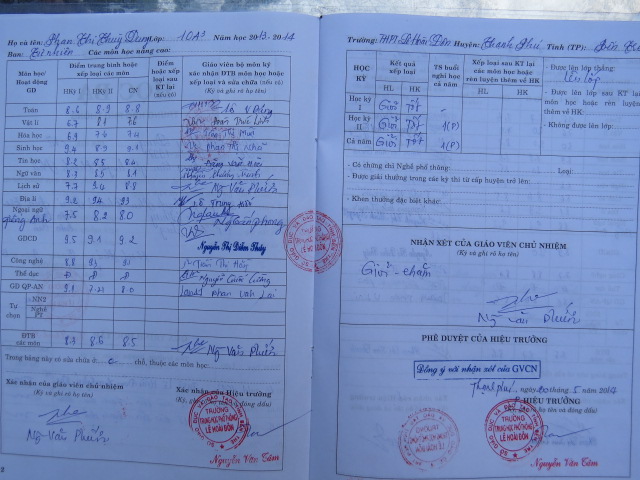 Họ và tên: Phan Thị Thuỳ Dung Lớp: 10A3 Năm học 2013-2014
Ban: Tự nhiên Các môn học nâng cao:
Môn học/ Hoạt động GD
Điểm trung bình hoặc xếp loại các môn
HKỳ I HKỳ II CN
Điểm hoặc xếp loại sau KT lại (nếu có)
Giáo viên bộ môn ký xác nhận ĐTB môn học hoặc xếp loại và sửa chữa (nếu có)
Toán 8.6 8.9 8.8
Vật lí 6.7 8.1 7.6
Hóa học 6.9 7.6 7.4
Sinh học 9.4 8.9 9.1
Tin học 8.2 8.5 8.4
Ngữ văn 8.7 8.5
Lịch sử 7.7 9.4 8.8 Ng Văn Phiến
Địa lí 9.2 9.4 9.3
Ngoại ngữ tiếng Anh 7.5 8.2 8.0
GDCD 9.5 9.1 9.2 Nguyễn Thị Diễm Thúy
Công nghệ 8.8 9.3 9.1
Thể dục Đ Đ Đ
GD QP-AN 9.1 8.0
Tự chọn
- NN2
Nghề PT
ĐTB các môn 8.3 8.6 8.5 Ng Văn Phiến
Trong bảng này có sửa chữa ở: 0 chỗ, thuộc các môn học:
Xác nhận của giáo viên chủ nhiệm
(Ký và ghi rõ họ tên)
Ng Văn Phiến
Xác nhận của Hiệu trưởng
TRƯỜNG
TRUNG HỌC PHỔ THÔNG
LÊ HOÀI ĐÔN
Nguyễn Văn Tâm
2
Trường: THPT Lê Hoài Đôn Huyện: Thạnh Phú Tỉnh (TP) Bến Tre
HỌC KỲ
Kết quả xếp loại
HL HK
TS buổi nghỉ học cả năm
Xếp loại sau KT lại các môn học hoặc rèn luyện thêm về HK
HL HK
Học kỳ I Giỏi Tốt -
Học kỳ II Giỏi Tốt 1(P)
Cả năm Giỏi Tốt 1(P)
- Được lên lớp thẳng:
Lên lớp
- Được lên lớp sau KT lại môn học hoặc rèn luyện thêm về HK:
- Không được lên lớp:
- Có chứng chỉ Nghề phổ thông: Loại:
- Được giải thưởng trong các kỳ thi từ cấp huyện trở lên:
- Khen thưởng đặc biệt khác:
NHẬN XÉT CỦA GIÁO VIÊN CHỦ NHIỆM
(Ký và ghi rõ họ tên)
Giỏi - chăm
Ng Văn Phiến
PHÊ DUYỆT CỦA HIỆU TRƯỞNG
Đồng ý với nhận xét của GVCN
Thạnh Phú, ngày 20 tháng 5 năm 2014
HIỆU TRƯỞNG
TRƯỜNG
TRUNG HỌC PHỔ THÔNG
LÊ HOÀI ĐÔN
Nguyễn Văn Tâm